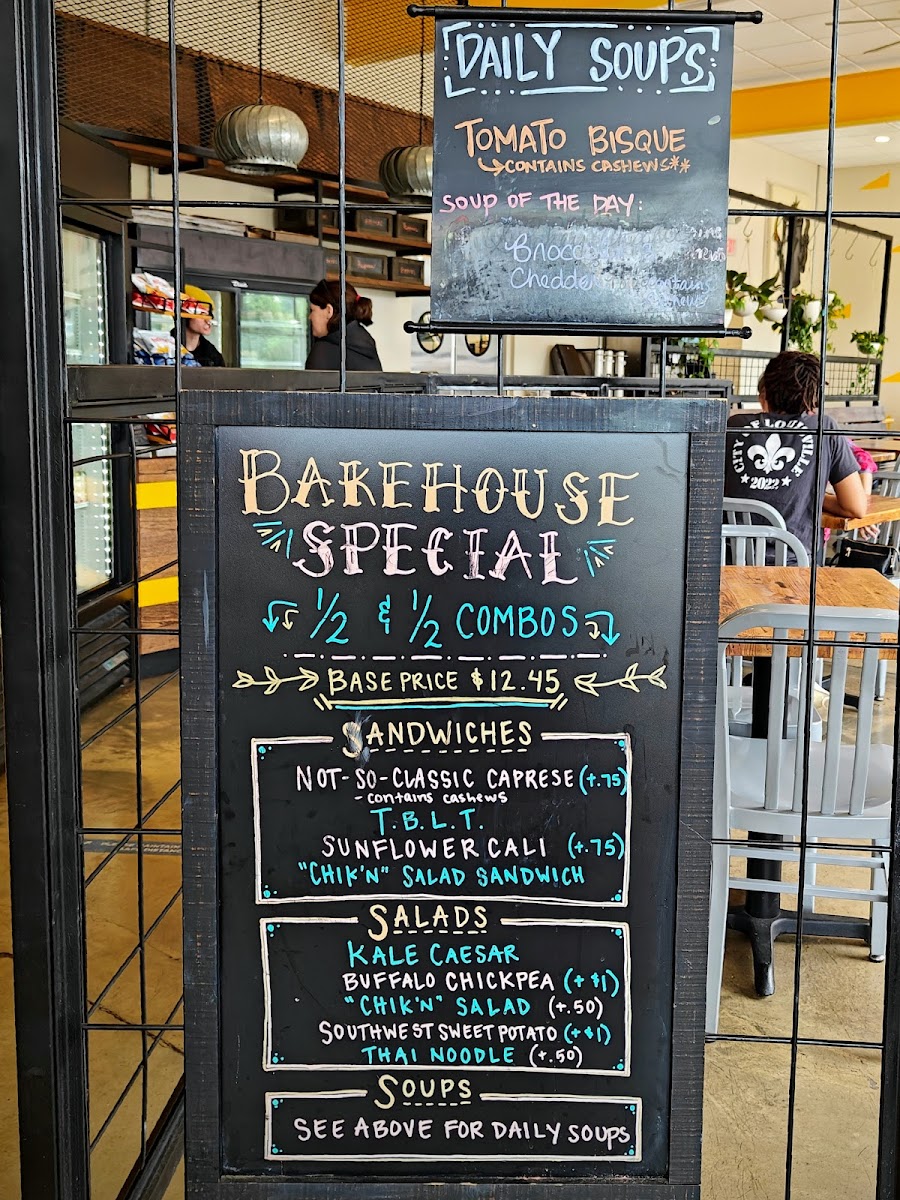 DAILY SOUPS
TOMATO BISQUE
CONTAINS CASHEWS**
SOUP OF THE DAY:
BAKEHOUSE
SPECIAL
1/2 & 1/2 COMBOS
BASE PRICE $12.45
SANDWICHES
NOT-SO-CLASSIC CAPRESE (+.75)
- contains cashews
T.B.L.T.
SUNFLOWER CALI (+.75)
"CHIK'N" SALAD SANDWICH
SALADS
KALE CAESAR
BUFFALO CHICKPEA (+$1)
"CHIK'N" SALAD (+.50)
SOUTHWEST SWEET POTATO (+$1)
THAI NOODLE (+.50)
SOUPS
SEE ABOVE FOR DAILY SOUPS
CITY OF LOUISVILLE
2022